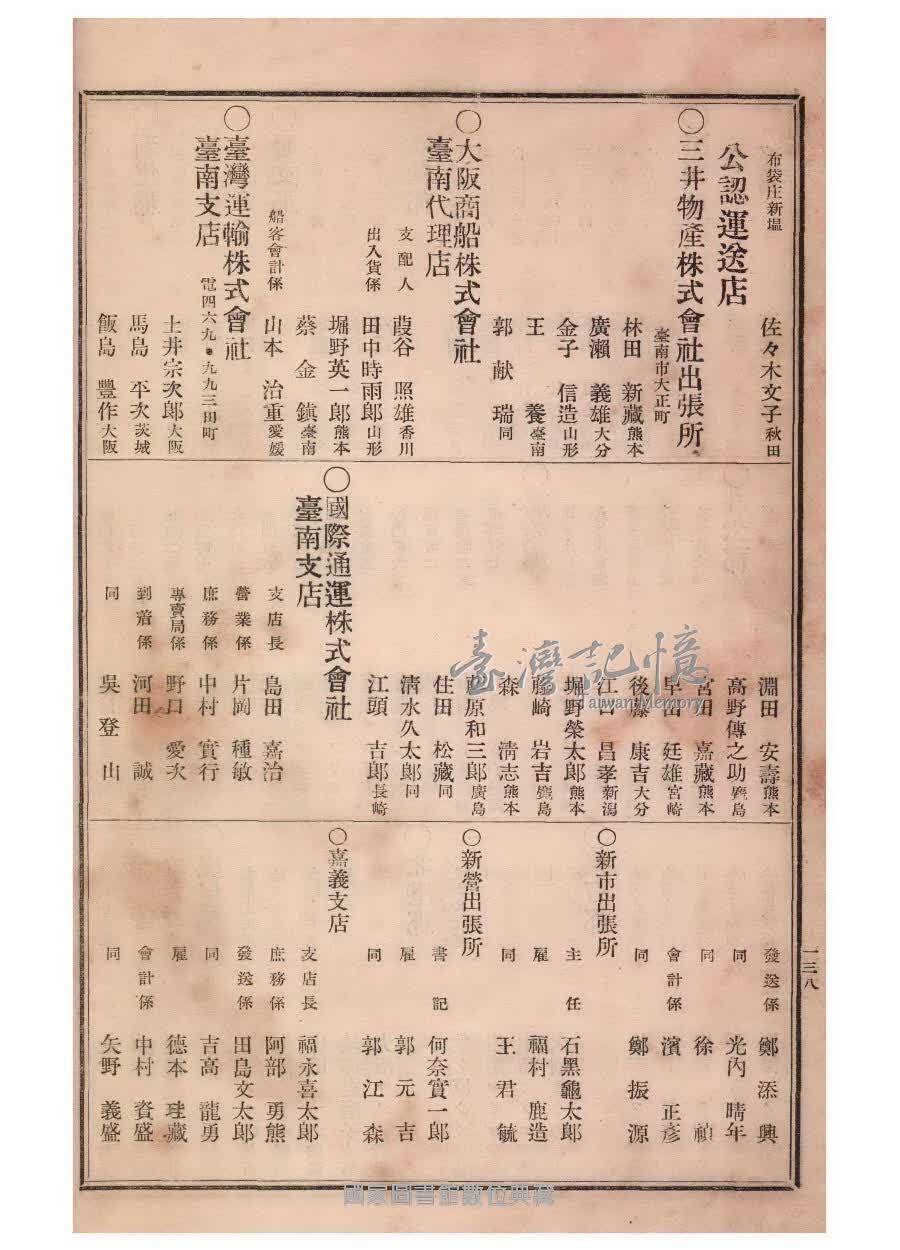 布袋庄新塭
佐々木文子 秋田
公認運送店
○三井物產株式會社出張所
臺南市大正町
林田 新藏 熊本
廣瀨 義雄 大分
金子 信造 山形
王 養 臺南
郭献瑞 同
○大阪商船株式會社
臺南代理店
支配人 葭谷 照雄 香川
出入貨係 田中時雨郎 山形
堀野英一郎 熊本
蔡金鎮 臺南
船客會計係 山本 治重 愛媛
○臺灣運輸株式會社
臺南支店
電四六九・九九三田町
土井宗次郎 大阪
馬島 平次 茨城
飯島 豐作 大阪
淵田 安壽 熊本
高野傳之助 鹿島
宮田 嘉藏 熊本
早田 廷雄 宮崎
後藤 康吉 大分
江口 昌孝 新潟
堀野榮太郎 熊本
藤崎 岩吉 鹿島
森 淸志 熊本
藤原和三郎 廣島
住田 松藏 同
淸水久太郎 同
江頭 吉郎 長崎
○國際通運株式會社
臺南支店
支店長 島田 嘉治
營業係 片岡 種敏
庶務係 中村 實行
專賣局係 野口 愛次
到着係 河田 誠
同 吳登山
發送係 鄭添興
同 光內 晴年
同 徐 禎
會計係 濱 正彥
同 鄭振源
○新市出張所
主任 石黑龜太郎
雇 福村 鹿造
同 王君毓
○新營出張所
書記 何奈實一郎
雇 郭元吉
同 郭江森
○嘉義支店
支店長 福永喜太郎
庶務係 阿部 勇熊
發送係 田島文太郎
同 吉高 龍勇
雇 德本 珪藏
會計係 中村 資盛
同 矢野 義盛
一三八
臺灣記憶
Taiwan Memory
國家圖書館數位典藏